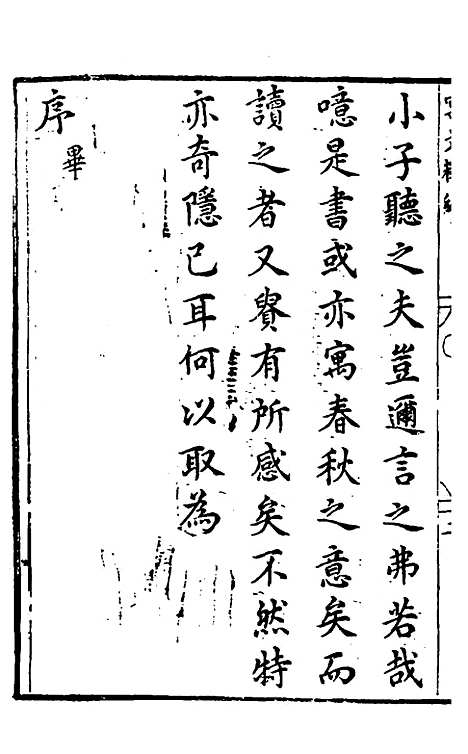 小子聽之夫豈邇言之弗若哉
噫是書或亦寓春秋之意矣而
讀之者又賢有所感矣不然特
亦奇隱已耳何以取為
序畢